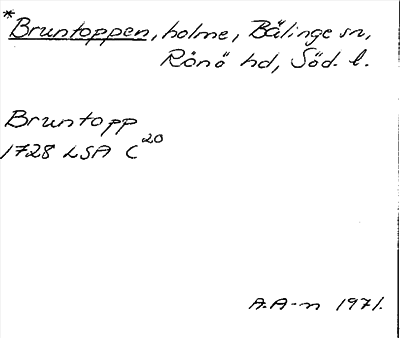 *Bruntoppen, holme, Bälinge sn,
Rönö hd, Söd. l.
Bruntopp
1728 LSA C²⁰
A.A-n 1971.